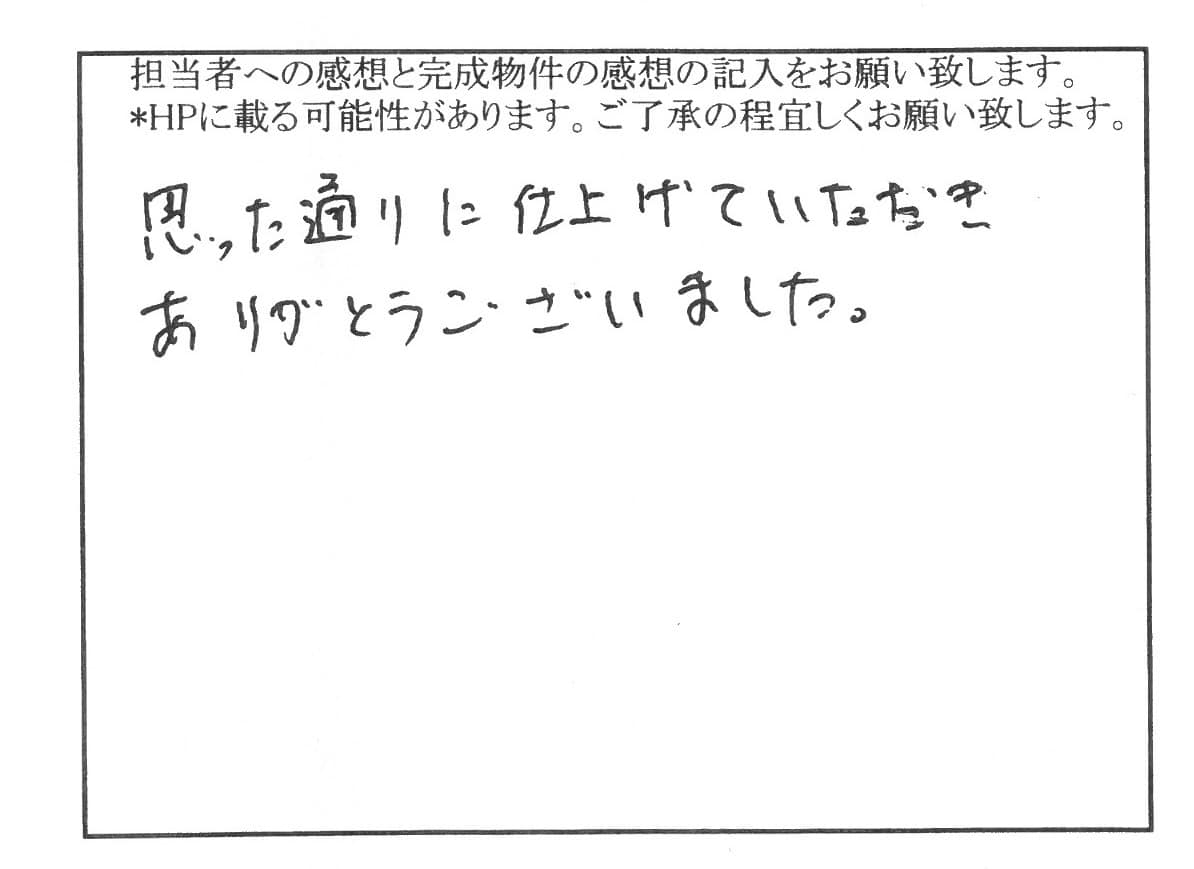 担当者への感想と完成物件の感想の記入をお願い致します。
*HPに載る可能性があります。ご了承の程宜しくお願い致します。
思った通りに仕上げていただき
ありがとうございました。